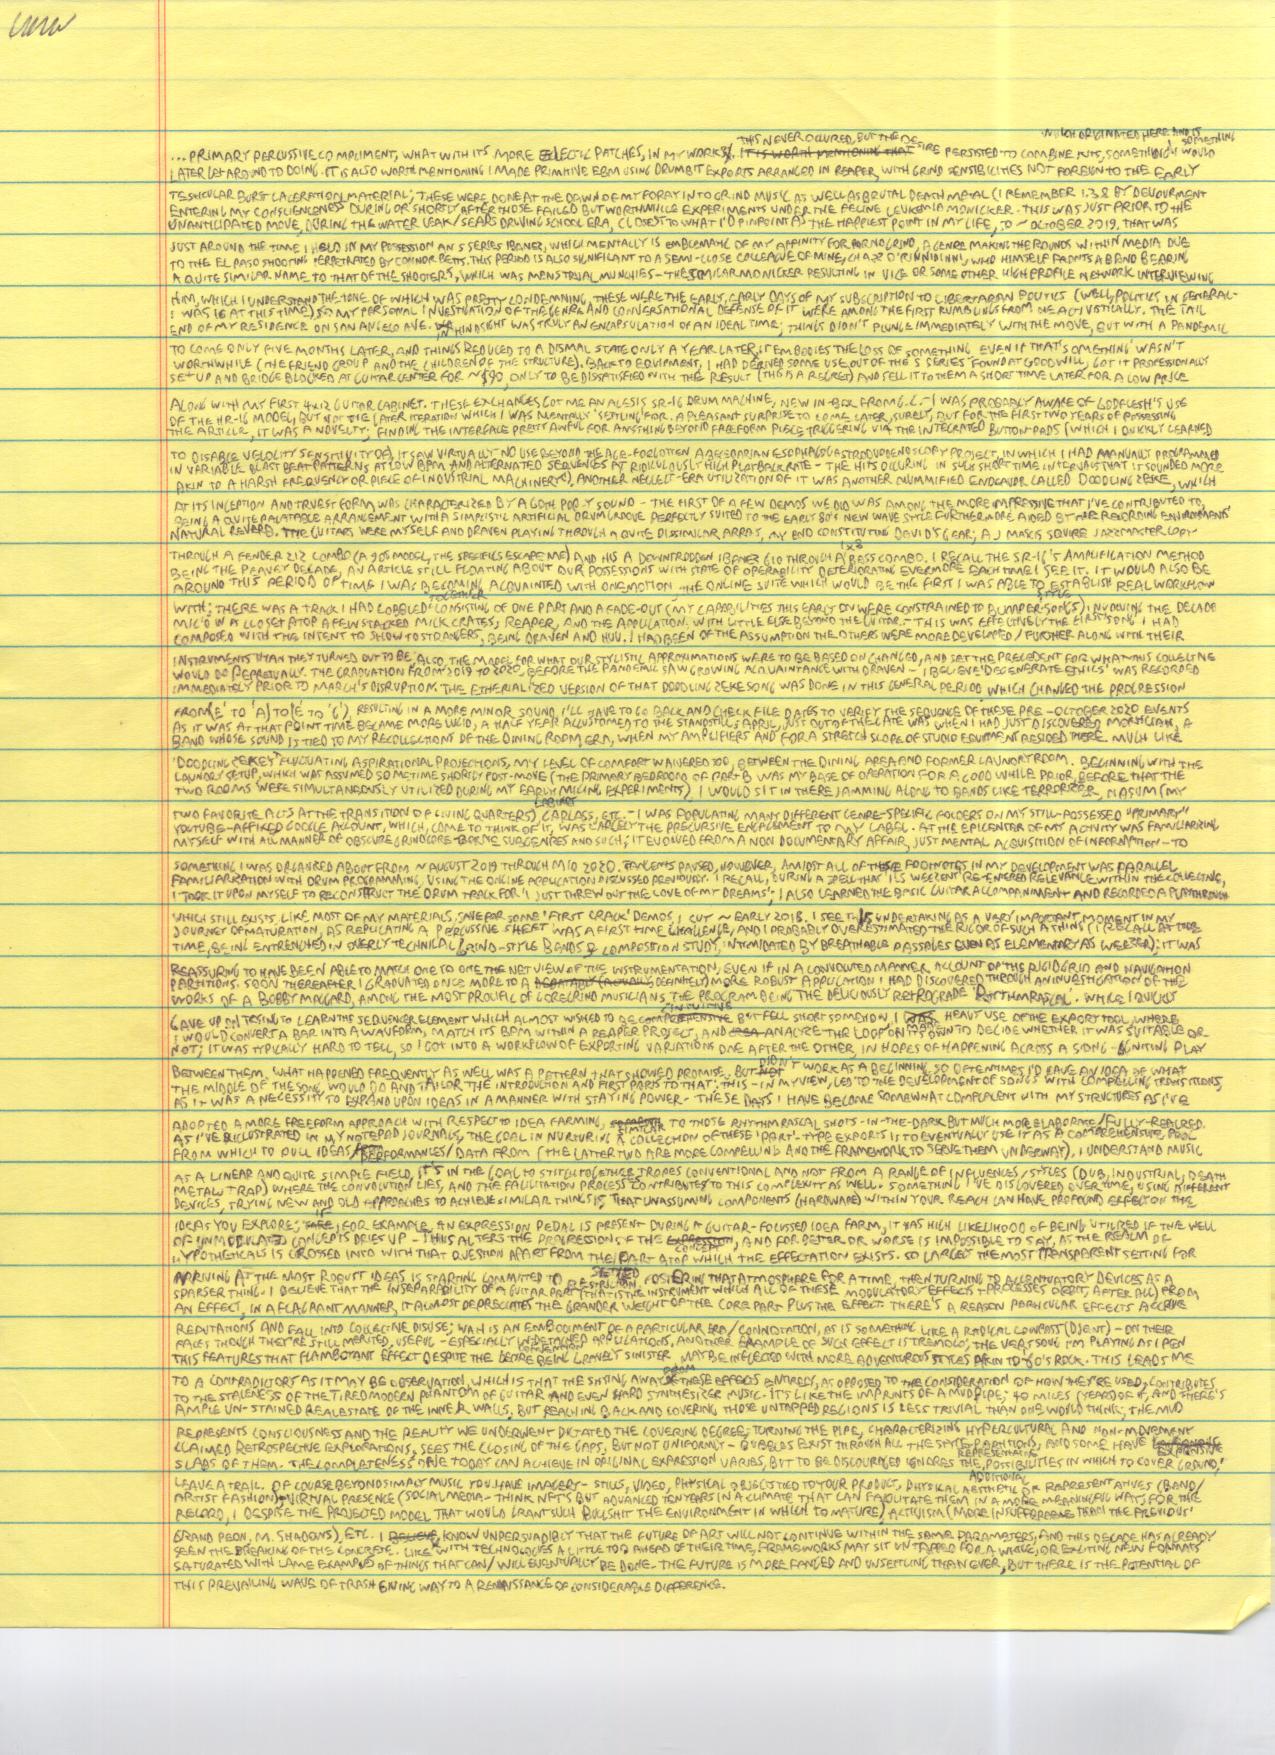 ...PRIMARY PERCUSSIVE COMPLIMENT, WHAT WITH IT'S MORE ECLECTIC PATCHES, IN MY WORKS. THIS NEVER OCCURED, BUT THE DESIRE PERSISTED TO COMBINE SOMETHING WHICH ORIGINATED HERE AND IS SOMETHING I WOULD
LATER GET AROUND TO DOING. IT IS ALSO WORTH MENTIONING I MADE PRIMITIVE EBM USING DRUMBIT EXPORTS ARRANGED IN REAPER, WITH GRIND SENSIBILITIES NOT FOREIGN TO THE EARLY
TESTICULAR BURST LACERATION MATERIAL; THESE WERE DONE AT THE DAWN OF MY FORAY INTO GRIND MUSIC AS WELL AS BRUTAL DEATH METAL (I REMEMBER 1.3.8 BY DEVOURMENT
ENTERING MY CONSCIENCENESS DURING OR SHORTLY AFTER THOSE FAILED BUT WORTHWHILE EXPERIMENTS UNDER THE FELINE LEUKEMIA MONICKER. THIS WAS JUST PRIOR TO THE
UNANTICIPATED MOVE, DURING THE WATER LEAK/SEARS DRIVING SCHOOL ERA, CLOSEST TO WHAT I'D PINPOINT AS THE HAPPIEST POINT IN MY LIFE, TO ~ OCTOBER 2019. THAT WAS
JUST AROUND THE TIME I HELD IN MY POSSESSION AN S SERIES IBANEZ, WHICH MENTALLY IS EMBLEMATIC OF MY AFFINITY FOR PORNOGRIND, A GENRE MAKING THE ROUNDS WITHIN MEDIA DUE
TO THE EL PASO SHOOTING PERPETRATED BY CONNOR BETTS. THIS PERIOD IS ALSO SIGNIFICANT TO A SEMI-CLOSE COLLEAGUE OF MINE, WHO HIMSELF FRONTS A BAND BEARING
A QUITE SIMILAR NAME TO THAT OF THE SHOOTERS, WHICH WAS MENSTRUAL MUNCHIES - THE SIMILAR MONICKER RESULTING IN VICE OR SOME OTHER HIGH PROFILE NETWORK INTERVIEWING
HIM, WHICH I UNDERSTAND THE TONE OF WHICH WAS PRETTY CONDEMNING, THESE WERE THE EARLY, EARLY DAYS OF MY SUBSCRIPTION TO LIBERTARIAN POLITICS (WELL, POLITICS IN GENERAL-
I WAS 16 AT THIS TIME) SO MY PERSONAL INVESTIGATION OF THE GENRE AND CONVERSATIONAL DEFENSE OF IT WERE AMONG THE FIRST RUMBLINGS FROM ME ACTIVISTICALLY. THE TAIL
END OF MY RESIDENCE ON SAN ANGELO AVE. IN HINDSIGHT WAS TRULY AN ENCAPSULATION OF AN IDEAL TIME; THINGS DIDN'T PLUNGE IMMEDIATELY WITH THE MOVE, BUT WITH A PANDEMIC
TO COME ONLY FIVE MONTHS LATER, AND THINGS REDUCED TO A DISMAL STATE ONLY A YEAR LATER, IT EMBODIES THE LOSS OF SOMETHING EVEN IF THAT 'SOMETHING' WASN'T
WORTHWHILE (THE FRIEND GROUP AND THE CHILDREN OF THE STRUCTURE). BACK TO EQUIPMENT, I HAD DERIVED SOME USE OUT OF THE S SERIES FOUND AT GOODWILL, GOT IT PROFESSIONALLY
SET UP AND BRIDGE BLOCKED AT GUITAR CENTER FOR ~$90, ONLY TO BE DISSATISFIED WITH THE RESULT (THIS IS A REGRET) AND SELL IT TO THEM A SHORT TIME LATER FOR A LOW PRICE
ALONG WITH MY FIRST 4X12 GUITAR CABINET. THESE EXCHANGES GOT ME AN ALESIS SR-16 DRUM MACHINE, NEW IN-BOX FROM G.C. - I WAS PROBABLY AWARE OF GODFLESH'S USE
OF THE HR-16 MODEL, BUT NOT THE LATER ITERATION WHICH I WAS MENTALLY 'SETTLING' FOR. A PLEASANT SURPRISE TO COME LATER, SURELY, BUT FOR THE FIRST TWO YEARS OF POSSESSING
THE ARTICLE, IT WAS A NOVELTY; FINDING THE INTERFACE PRETTY AWFUL FOR ANYTHING BEYOND FREEFORM PIECE TRIGGERING VIA THE INTEGRATED BUTTON-PADS (WHICH I QUICKLY LEARNED
TO DISABLE VELOCITY SENSITIVITY OF), IT SAW VIRTUALLY NO USE BEYOND THE AGE-FORGOTTEN ABECEDARIAN ESOPHAGOGASTRODUODENOSCOPY PROJECT, IN WHICH I HAD MANUALLY PROGRAMMED
IN VARIABLE BLAST BEAT PATTERNS AT LOW BPM AND ALTERNATED SEQUENCES AT RIDICULOUSLY HIGH PLAYBACK RATE - THE HITS OCCURING IN SUCH SHORT TIME INTERVALS THAT IT SOUNDED MORE
AKIN TO A HARSH FREQUENCY OR PIECE OF INDUSTRIAL MACHINERY(?) ANOTHER NEGLECT-ERA UTILIZATION OF IT WAS ANOTHER MUMMIFIED ENDEAVOR CALLED DOODLING ZEKE, WHICH
AT ITS INCEPTION AND TRUEST FORM, WAS CHARACTERIZED BY A GOTH POP-Y SOUND - THE FIRST OF A FEW DEMOS WE DID WAS AMONG THE MORE IMPRESSIVE THAT I'VE CONTRIBUTED TO,
BEING A QUITE PALATABLE ARRANGEMENT WITH A SIMPLISTIC ARTIFICIAL DRUM GROOVE PERFECTLY SUITED TO THE EARLY 80'S NEW WAVE STYLE FURTHERMORE AIDED BY THE RECORDING ENVIRONMENTS'
NATURAL REVERB. THE GUITARS WERE MYSELF AND DRAVEN PLAYING THROUGH A QUITE DISSIMILAR ARRAY, MY END CONSTITUTING DAVID'S GEAR; A J MASCIS SQUIRE JAZZMASTER COPY
THROUGH A FENDER 212 COMBO (A 90S MODEL, THE SPECIFICS ESCAPE ME) AND HIS A DOWNTRODDEN IBANEZ G10 THROUGH A 1X8 BASS COMBO. I RECALL THE SR-16'S AMPLIFICATION METHOD
BEING THE PEAVEY DECADE, AN ARTICLE STILL FLOATING ABOUT OUR POSSESSIONS WITH STATE OF OPERABILITY DETERIORATING EVERMORE EACH TIME I SEE IT. IT WOULD ALSO BE
AROUND THIS PERIOD OF TIME I WAS BECOMING ACQUAINTED WITH ONEMOTION, THE ONLINE SUITE WHICH WOULD BE THE FIRST I WAS ABLE TO ESTABLISH REAL WORKFLOW
WITH; THERE WAS A TRACK I HAD COBBLED TOGETHER CONSISTING OF ONE PART AND A FADE-OUT (MY CAPABILITIES THIS EARLY ON WERE CONSTRAINED TO BUMPER-STYLE SONGS) INVOLVING THE DECADE
MIC'D IN A CLOSET ATOP A FEW STACKED MILK CRATES, REAPER, AND THE APPLICATION, WITH LITTLE ELSE BEYOND THE GUITAR - THIS WAS EFFECTIVELY THE FIRST 'SONG' I HAD
COMPOSED WITH THE INTENT TO SHOW TO STRANGERS, BEING DRAVEN AND HUV. I HAD BEEN OF THE ASSUMPTION THE OTHERS WERE MORE DEVELOPED / FURTHER ALONG WITH THEIR
INSTRUMENTS THAN THEY TURNED OUT TO BE, ALSO, THE MODEL FOR WHAT OUR STYLISTIC APPROXIMATIONS WERE TO BE BASED ON CHANGED, AND SET THE PRECEDENT FOR WHAT THIS COLLECTIVE
WOULD DO PERPETUALLY. THE GRADUATION FROM 2019 TO 2020, BEFORE THE PANDEMIC SAW GROWING ACQUAINTANCE WITH DRAVEN - I BELIEVE 'DEGENERATE ETHICS' WAS RECORDED
IMMEDIATELY PRIOR TO MARCH'S DISRUPTION. THE ETHERIALIZED VERSION OF THAT DOODLING ZEKE SONG WAS DONE IN THIS GENERAL PERIOD WHICH CHANGED THE PROGRESSION
FROM (E' TO 'A) TO (E' TO 'G'), RESULTING IN A MORE MINOR SOUND. I'LL HAVE TO GO BACK AND CHECK FILE DATES TO VERIFY THE SEQUENCE OF THESE PRE-OCTOBER 2020 EVENTS
AS IT WAS AT THAT POINT TIME BECAME MORE LUCID, A HALF YEAR ACCUSTOMED TO THE STANDSTILL; APRIL, JUST OUT OF THE GATE WAS WHEN I HAD JUST DISCOVERED MORTICIAN, A
BAND WHOSE SOUND IS TIED TO MY RECOLLECTIONS OF THE DINING ROOM ERA, WHEN MY AMPLIFIERS AND FOR A STRETCH SCOPE OF STUDIO EQUIPMENT RESIDED THERE. MUCH LIKE
'DOODLING ZEKE'S' FLUCTUATING ASPIRATIONAL PROJECTIONS, MY LEVEL OF COMFORT WAIVERED TOO, BETWEEN THE DINING AREA AND FORMER LAUNDRY ROOM. BEGINNING WITH THE
LAUNDRY SETUP, WHICH WAS ASSUMED SOMETIME SHORTLY POST-MOVE (THE PRIMARY BEDROOM OF PART B WAS MY BASE OF OPERATION FOR A GOOD WHILE PRIOR, BEFORE THAT THE
TWO ROOMS WERE SIMULTANEOUSLY UTILIZED DURING MY EARLY CABINET MICING EXPERIMENTS) I WOULD SIT IN THERE JAMMING ALONG TO BANDS LIKE TERRORIZER, NASUM (MY
TWO FAVORITE ACTS AT THE TRANSITION OF LIVING QUARTERS) CARCASS, ETC. - I WAS POPULATING MANY DIFFERENT GENRE-SPECIFIC FOLDERS ON MY STILL-POSSESSED "PRIMARY"
YOUTUBE-AFFIXED GOOGLE ACCOUNT, WHICH, COME TO THINK OF IT, WAS LARGELY THE PRECURSIVE ENGAGEMENT TO MY LABEL. AT THE EPICENTER OF MY ACTIVITY WAS FAMILIARIZING
MYSELF WITH ALL MANNER OF OBSCURE GRINDCORE-BORNE SUBGENRES AND SUCH; IT EVOLVED FROM A NON DOCUMENTARY AFFAIR, JUST MENTAL ACQUISITION OF INFORMATION - TO
SOMETHING I WAS ORGANIZED ABOUT FROM ~ AUGUST 2019 THROUGH MID 2020. TANGENTS PAUSED, HOWEVER, AMIDST ALL OF THESE FOOTNOTES IN MY DEVELOPMENT WAS PARALLEL
FAMILIARIZATION WITH DRUM PROGRAMMING, USING THE ONLINE APPLICATION DISCUSSED PREVIOUSLY. I RECALL, DURING A SPELL THAT 90'S WEEZER RE-ENTERED RELEVANCE WITHIN THE COLLECTIVE,
I TOOK IT UPON MYSELF TO RECONSTRUCT THE DRUM TRACK FOR 'I JUST THREW OUT THE LOVE OF MY DREAMS'; I ALSO LEARNED THE BASIC GUITAR ACCOMPANIMENT AND RECORDED A PLAYTHROUGH
WHICH STILL EXISTS, LIKE MOST OF MY MATERIALS, SAVE FOR SOME 'FIRST CRACK' DEMOS, I CUT ~ EARLY 2018. I SEE THIS UNDERTAKING AS A VERY IMPORTANT MOMENT IN MY
JOURNEY OF MATURATION, AS REPLICATING A PERCUSSIVE SHEET WAS A FIRST TIME CHALLENGE, AND I PROBABLY OVERESTIMATED THE RIGOR OF SUCH A THING (I RECALL AT THIS
TIME, BEING ENTRENCHED IN OVERLY TECHNICAL GRIND-STYLE BANDS & COMPOSITION STUDY, INTIMIDATED BY BREATHABLE PASSAGES EVEN AS ELEMENTARY AS WEEZER); IT WAS
REASSURING TO HAVE BEEN ABLE TO MATCH ONE TO ONE THE NET VIEW OF THE INSTRUMENTATION, EVEN IF IN A CONVOLUTED MANNER ACCOUNT OF THE RIGID GRID AND NAVIGATION
PARTITIONS. SOON THEREAFTER I GRADUATED ONCE MORE TO A (ACTUALLY, DEFINITELY) MORE ROBUST APPLICATION I HAD DISCOVERED THROUGH AN INVESTIGATION OF THE
WORKS OF A BOBBY MAGGARD, AMONG THE MOST PROLIFIC OF GOREGRIND MUSICIANS, THE PROGRAM BEING THE DELICIOUSLY RETROGRADE 'RHYTHM RASCAL'. WHILE I QUICKLY
GAVE UP ON TRYING TO LEARN THE SEQUENCER ELEMENT WHICH ALMOST WISHED TO BE INTUITIVE BUT FELL SHORT SOMEHOW, I MADE HEAVY USE OF THE EXPORT TOOL, WHERE
I WOULD CONVERT A BAR INTO A WAVEFORM, MATCH ITS BPM WITHIN A REAPER PROJECT, AND ANALYZE THE LOOP ON ITS OWN TO DECIDE WHETHER IT WAS SUITABLE OR
NOT; IT WAS TYPICALLY HARD TO TELL, SO I GOT INTO A WORKFLOW OF EXPORTING VARIATIONS ONE AFTER THE OTHER, IN HOPES OF HAPPENING ACROSS A SONG-IGNITING PLAY
BETWEEN THEM. WHAT HAPPENED FREQUENTLY AS WELL WAS A PATTERN THAT SHOWED PROMISE, BUT DIDN'T WORK AS A BEGINNING, SO OFTENTIMES I'D HAVE AN IDEA OF WHAT
THE MIDDLE OF THE SONG WOULD DO AND TAILOR THE INTRODUCTION AND FIRST PARTS TO THAT; THIS - IN MY VIEW, LED TO THE DEVELOPMENT OF SONGS WITH COMPELLING TRANSITIONS,
AS IT WAS A NECESSITY TO EXPAND UPON IDEAS IN A MANNER WITH STAYING POWER - THESE DAYS I HAVE BECOME SOMEWHAT COMPLACENT WITH MY STRUCTURES AS I'VE
ADOPTED A MORE FREEFORM APPROACH WITH RESPECT TO IDEA FARMING, SIMILAR TO THOSE RHYTHM RASCAL SHOTS-IN-THE-DARK BUT MUCH MORE ELABORATE/FULLY-REALIZED.
AS I'VE ILLUSTRATED IN MY NOTEPAD JOURNALS, THE GOAL IN NURTURING A COLLECTION OF THESE 'PART'-TYPE EXPORTS IS TO EVENTUALLY USE IT AS A COMPREHENSIVE POOL
FROM WHICH TO PULL IDEAS/PERFORMANCES/DATA FROM (THE LATTER TWO ARE MORE COMPELLING AND THE FRAMEWORK TO SERVE THEM UNDERWAY), I UNDERSTAND MUSIC
AS A LINEAR AND QUITE SIMPLE FIELD, IT'S IN THE GOAL TO STITCH TOGETHER TROPES CONVENTIONAL AND NOT FROM A RANGE OF INFLUENCES/STYLES (DUB, INDUSTRIAL, DEATH
METAL, TRAP) WHERE THE CONVOLUTION LIES, AND THE FACILITATION PROCESS CONTRIBUTES TO THIS COMPLEXITY AS WELL. SOMETHING I'VE DISCOVERED OVER TIME, USING DIFFERENT
DEVICES, TRYING NEW AND OLD APPROACHES TO ACHIEVE SIMILAR THINGS IS, THAT UNASSUMING COMPONENTS (HARDWARE) WITHIN YOUR REACH CAN HAVE PROFOUND EFFECT ON THE
IDEAS YOU EXPLORE; IF, FOR EXAMPLE, AN EXPRESSION PEDAL IS PRESENT DURING A GUITAR-FOCUSSED IDEA FARM, IT HAS HIGH LIKELIHOOD OF BEING UTILIZED IF THE WELL
OF UNMODULATED CONCEPTS DRIES UP - THUS ALTERS THE PROGRESSION OF THE CONCEPT, AND FOR BETTER OR WORSE IS IMPOSSIBLE TO SAY, AS THE REALM OF
HYPOTHETICALS IS CROSSED INTO WITH THAT QUESTION APART FROM THE PART ATOP WHICH THE EFFECTATION EXISTS. SO LARGELY THE MOST TRANSPARENT SETTING FOR
ARRIVING AT THE MOST ROBUST IDEAS IS STARTING COMMITTED TO RESTRICTION, FOSTER IN THAT ATMOSPHERE FOR A TIME, THEN TURNING TO ACCENTUATORY DEVICES AS A
SPARSER THING. I BELIEVE THAT THE INSEPARABILITY OF A GUITAR PART (THAT IS THE INSTRUMENT WHICH ALL OF THESE MODULATORY EFFECTS + PROCESSES ORBIT, AFTER ALL) FROM
AN EFFECT, IN A FLAGRANT MANNER, IT ALMOST DEPRECIATES THE GRANDER WEIGHT OF THE CORE PART PLUS THE EFFECT. THERE'S A REASON PARTICULAR EFFECTS ACCRUE
REPUTATIONS AND FALL INTO COLLECTIVE DISUSE; WAH IS AN EMBODIMENT OF A PARTICULAR ERA/CONNOTATION, AS IS SOMETHING LIKE A RADICAL LOWPASS (DJENT) - ON THEIR
FACES THOUGH THEY'RE STILL MERITED, USEFUL - ESPECIALLY IN DETAINED APPLICATIONS, ANOTHER EXAMPLE OF SUCH EFFECT IS TREMOLO; THE VERY SONG I'M PLAYING AS I PEN
THIS FEATURES THAT FLAMBOYANT EFFECT DESPITE THE GENRE CONVENTION BEING GRAVELY SINISTER, MAYBE INFLECTED WITH MORE ADVENTUROUS STYLES AKIN TO 70'S ROCK. THIS LEADS ME
TO A CONTRADICTORY AS IT MAY BE OBSERVATION, WHICH IS THAT THE SHYING AWAY FROM THESE EFFECTS ENTIRELY, AS OPPOSED TO THE CONSIDERATION OF HOW THEY'RE USED, CONTRIBUTES
TO THE STALENESS OF THE TIRED MODERN PHANTOM OF GUITAR AND EVEN HARD SYNTHESIZER MUSIC. IT'S LIKE THE IMPRINTS OF A MUD PIPE; 40 MILES (YEARS) OF IT, AND THERE'S
AMPLE UN-STAINED REAL ESTATE OF THE INNER WALLS, BUT REACHING BACK AND COVERING THOSE UNTAPPED REGIONS IS LESS TRIVIAL THAN ONE WOULD THINK; THE MUD
REPRESENTS CONSCIOUSNESS AND THE REALITY WE UNDERWENT DICTATED THE COVERING DEGREE; TURNING THE PIPE, CHARACTERIZING HYPERCULTURAL AND NON-MOVEMENT
CLAIMED RETROSPECTIVE EXPLORATIONS, SEES THE CLOSING OF THE GAPS, BUT NOT UNIFORMLY - BUBBLES EXIST THROUGH ALL THE STYLE-PARTITIONS, AND SOME HAVE EXPANSIVE
SLABS OF THEM. THE COMPLETENESS ONE TODAY CAN ACHIEVE IN ORIGINAL EXPRESSION VARIES, BUT TO BE DISCOURAGED IGNORES THE POSSIBILITIES IN WHICH TO COVER GROUND,
LEAVE A TRAIL. OF COURSE BEYOND SIMPLY MUSIC YOU HAVE IMAGERY - STILLS, VIDEO, PHYSICAL OBJECTS TIED TO YOUR PRODUCT, PHYSICAL AESTHETIC OR ADDITIONAL REPRESENTATIVES (BAND/
ARTIST FASHION), VIRTUAL PRESENCE (SOCIAL MEDIA - THINK NFTS BUT ADVANCED TEN YEARS IN A CLIMATE THAT CAN FACILITATE THEM IN A MORE MEANINGFUL WAY, FOR THE
RECORD, I DESPISE THE PROJECTED MODEL THAT WOULD GRANT SUCH BULLSHIT THE ENVIRONMENT IN WHICH TO MATURE) ACTIVISM (MORE INSUFFERABLE THAN THE PREVIOUS'
GRAND PEON, M. SHADOWS), ETC. I KNOW UNPERSUADIBLY THAT THE FUTURE OF ART WILL NOT CONTINUE WITHIN THE SAME PARAMETERS, AND THIS DECADE HAS ALREADY
SEEN THE BREAKING OF THE CONCRETE. LIKE WITH TECHNOLOGIES A LITTLE TOO AHEAD OF THEIR TIME, FRAMEWORKS MAY SIT UNTAPPED FOR A WHILE, OR EXCITING NEW FORMATS
SATURATED WITH LAME EXAMPLES OF THINGS THAT CAN/WILL EVENTUALLY BE DONE. THE FUTURE IS MORE FANGED AND UNSETTLING THAN EVER, BUT THERE IS THE POTENTIAL OF
THIS PREVAILING WAVE OF TRASH GIVING WAY TO A RENAISSANCE OF CONSIDERABLE DIFFERENCE.